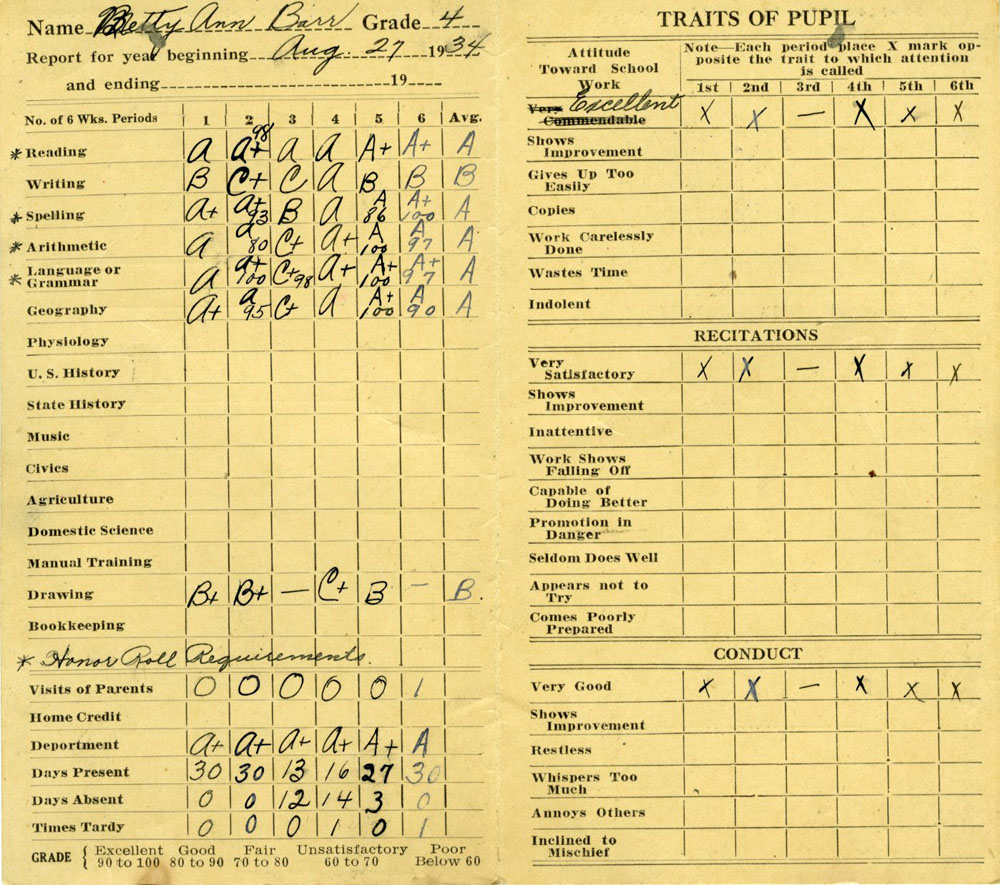 Name Betty Ann Barr Grade 4
Report for year beginning Aug. 27 1934
and ending 19
No. of 6 Wks. Periods 1 2 3 4 5 6 Avg.
* Reading A A+ 98 A A A+ A+ A
Writing B C+ C A B B B
* Spelling A+ A+ 93 B A A 86 A+ 100 A
* Arithmetic A A 80 C+ A+ A 100 A 97 A
* Language or Grammar A A+ 100 C+ 98 A+ A+ 100 A+ 97 A
Geography A+ A 95 C+ A A+ 100 A 90 A
Physiology
U. S. History
State History
Music
Civics
Agriculture
Domestic Science
Manual Training
Drawing B+ B+ — C+ B — B.
Bookkeeping
* Honor Roll Requirements.
Visits of Parents 0 0 0 0 0 1
Home Credit
Deportment A+ A+ A+ A+ A+ A
Days Present 30 30 13 16 27 30
Days Absent 0 0 12 14 3 0
Times Tardy 0 0 0 1 0 1
GRADE { Excellent Good Fair Unsatisfactory Poor
90 to 100 80 to 90 70 to 80 60 to 70 Below 60
TRAITS OF PUPIL
Attitude
Toward School
Work
Note—Each period place X mark op-
posite the trait to which attention
is called
1st 2nd 3rd 4th 5th 6th
Very Excellent
Commendable X X — X X X
Shows
Improvement
Gives Up Too
Easily
Copies
Work Carelessly
Done
Wastes Time
Indolent
RECITATIONS
Very
Satisfactory X X — X X X
Shows
Improvement
Inattentive
Work Shows
Falling Off
Capable of
Doing Better
Promotion in
Danger
Seldom Does Well
Appears not to
Try
Comes Poorly
Prepared
CONDUCT
Very Good X X — X X X
Shows
Improvement
Restless
Whispers Too
Much
Annoys Others
Inclined to
Mischief